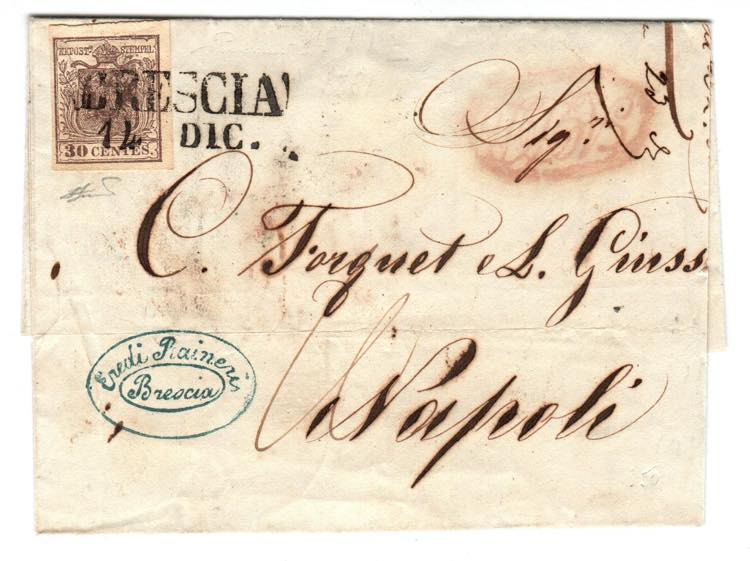 KKPOST-STEMPEL
30 CENTES.
BRESCIA
14 DIC.
Sig.ri
C. Forquet e L. Giuss
Napoli
Eredi Raineri
Brescia
23